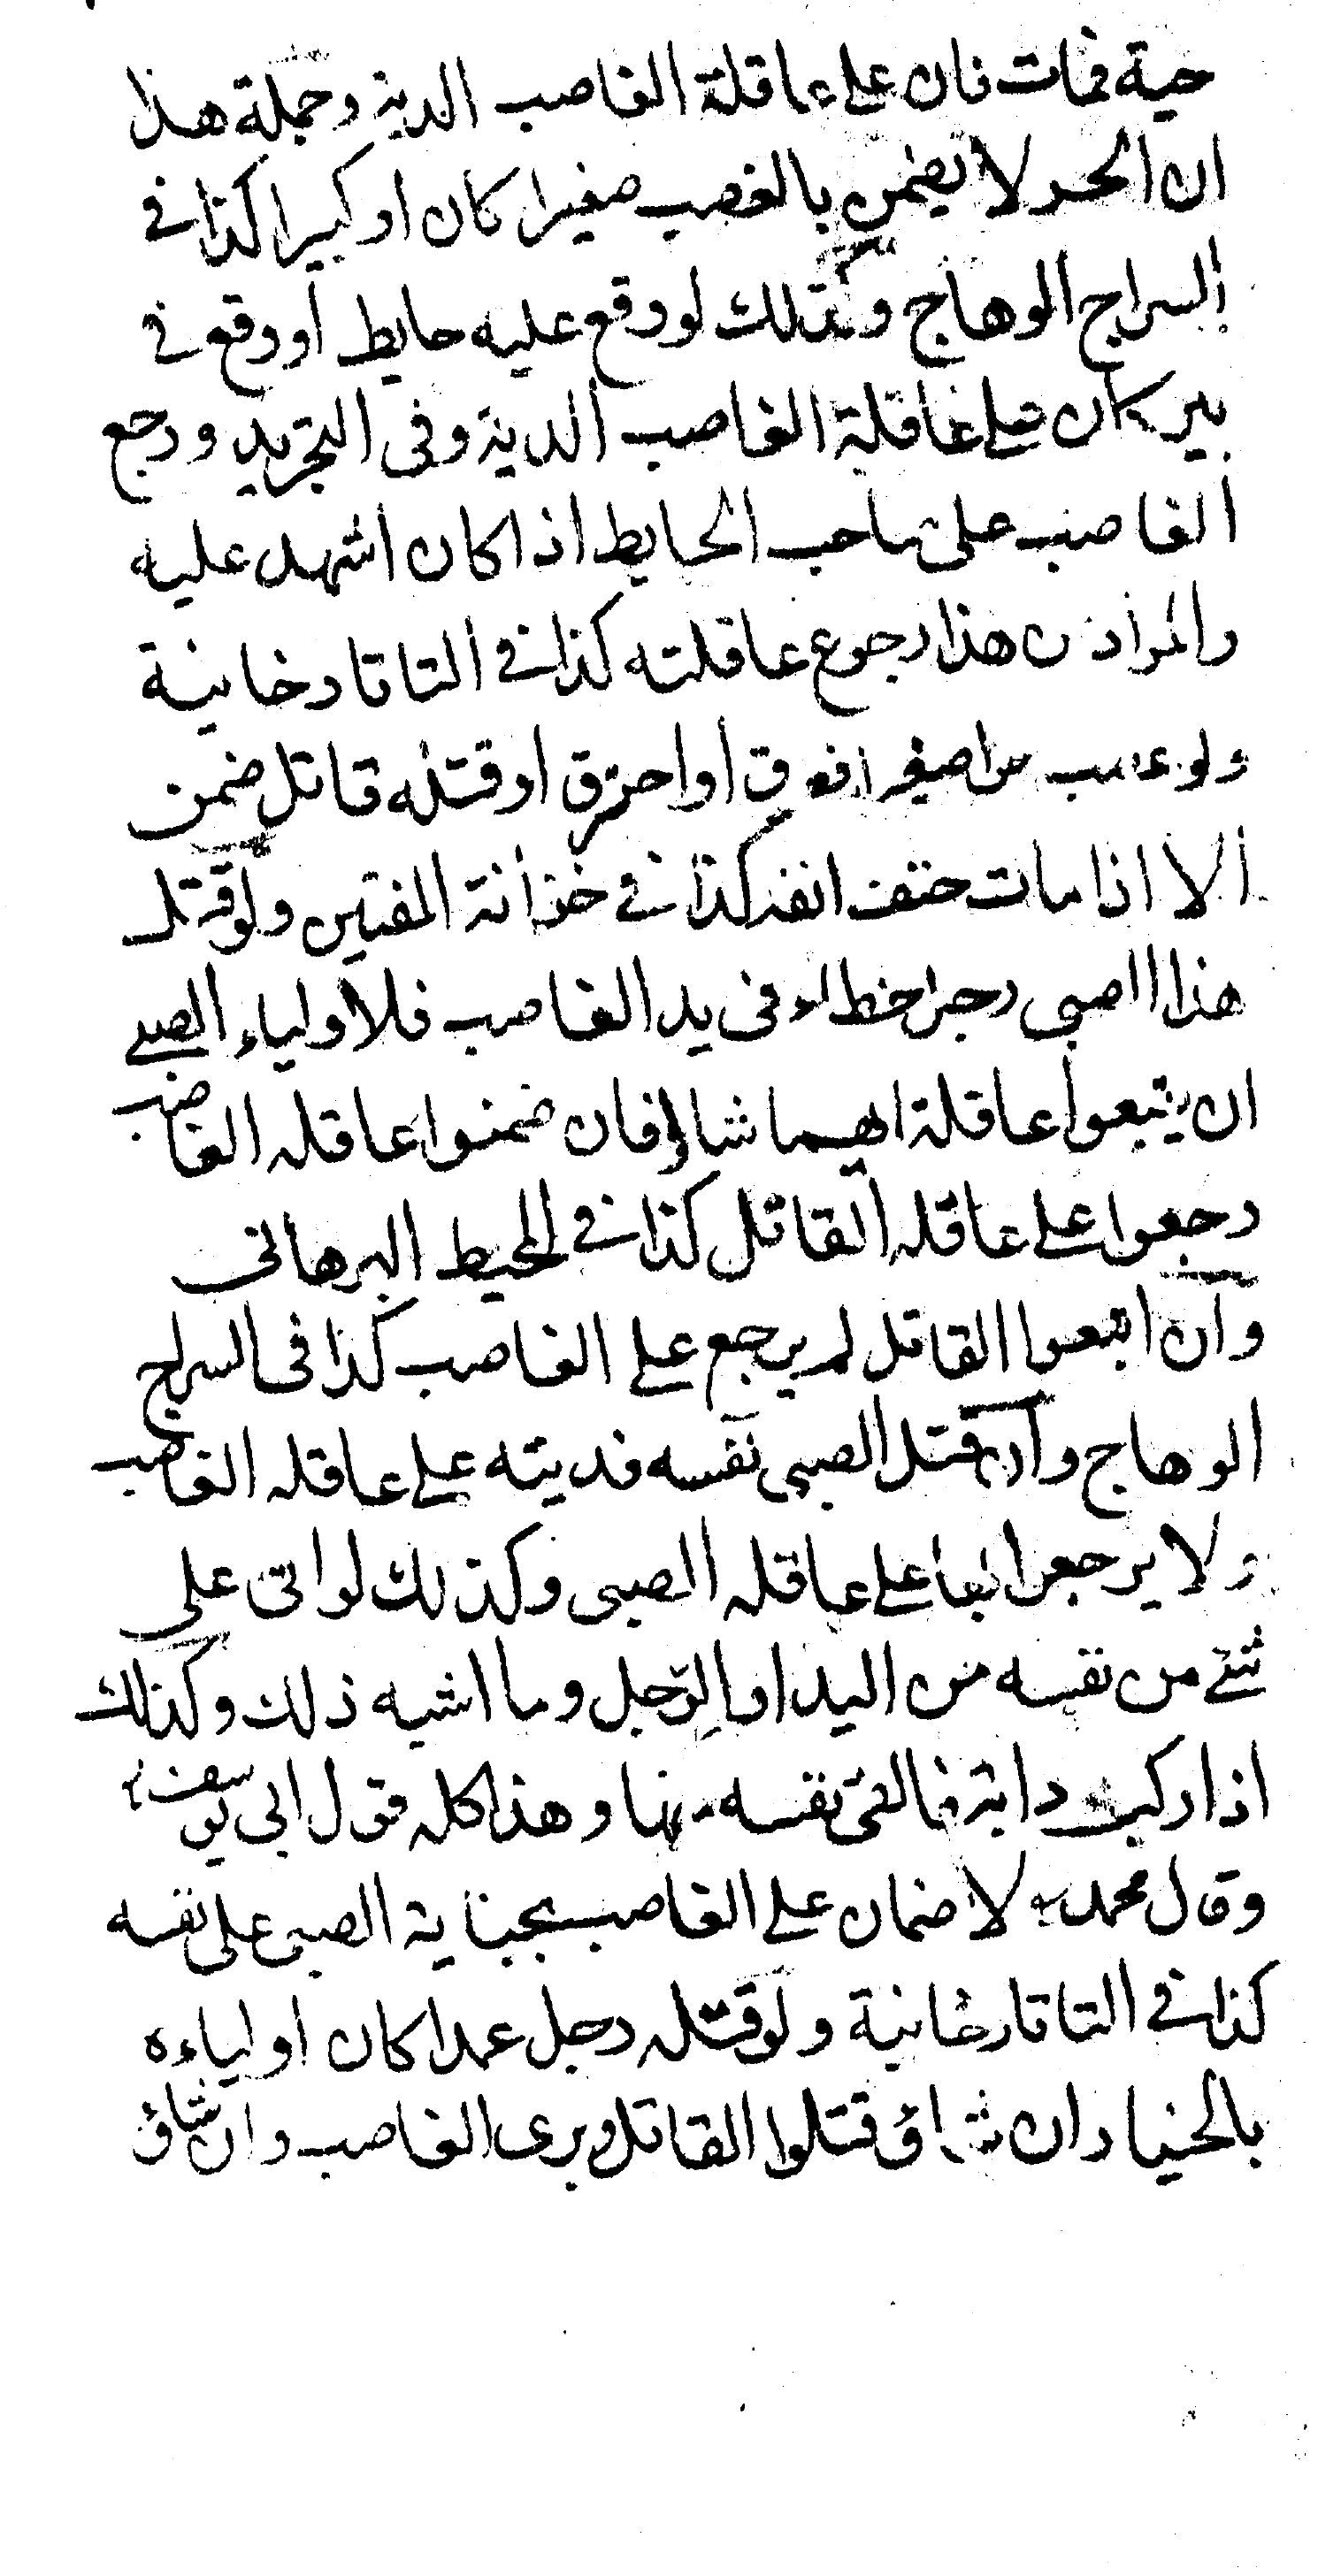 حية فمات فان على عاقلة الغاصب الدية وجملة هذا
ان الحر لا يضمن بالغصب صغيرا كان او كبيرا كذا في
السراج الوهاج وكذلك لو وقع عليه حايط او وقع في
بير كان على عاقلة الغاصب الدية وفى التجريد ورجع
الغاصب على صاحب الحايط اذا كان اشهد عليه
والمراد من هذا رجوع عاقلته كذا في التاتارخانية
ولو غصب صغيرا او احترق او قتله قاتل ضمن
الا اذا مات حتف انفه كذا في خزانة المفتين ولو قتل
هذا الصبى رجل خطاء فى يد الغاصب فلاولياء الصبى
ان يتبعوا عاقلة ايهما شاؤا فان ضمنوا عاقله الغاصب
رجعوا على عاقله القاتل كذا في المحيط البرهانى
وان اتبعوا القاتل لم يرجع على الغاصب كذا فى السراج
الوهاج وان قتل الصبى نفسه فديته على عاقله الغاصب
ولا يرجعوا على عاقله الصبى وكذلك لو اتى على
شئ من نفسه من اليد او الرجل وما اشبه ذلك وكذلك
اذا ركب دابة فالقى نفسه منها وهذا كله قول ابى يوسف
وقال محمد لا ضمان على الغاصب بجناية الصبى على نفسه
كذا في التاتارخانية ولو قتله رجل عمدا كان اولياءه
بالخيار ان شاؤ قتلوا القاتل وبرى الغاصب وان شاؤ